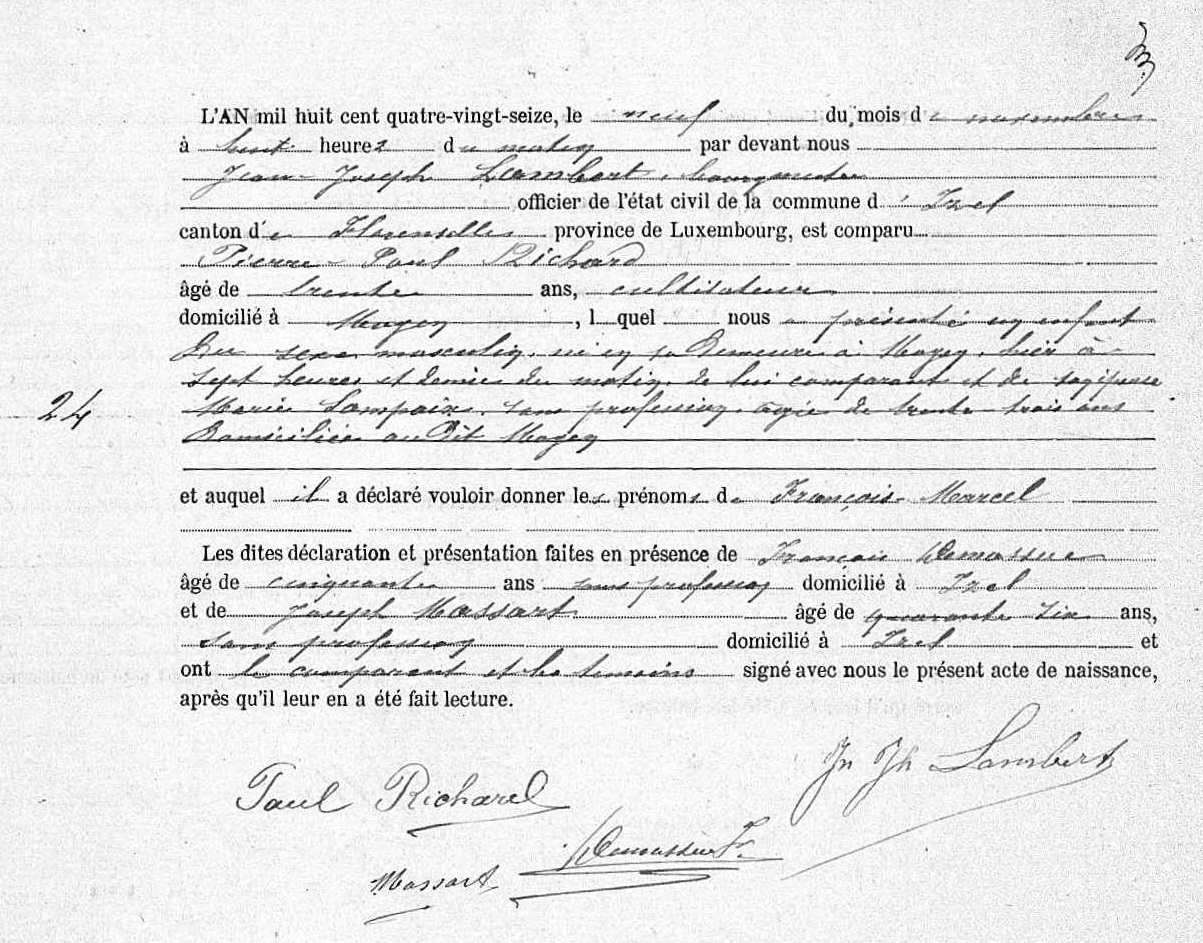 L'AN mil huit cent quatre-vingt-seize, le neuf du mois de novembre
à huit heures du matin par devant nous
Jean-Joseph Lambert, bourgmestre
officier de l'état civil de la commune d'Izel
canton de Florenville province de Luxembourg, est comparu
Pierre-Paul Richard
âgé de trente ans, cultivateur
domicilié à Moyen, lequel nous a présenté un enfant
du sexe masculin, né en sa demeure à Moyen, hier à
sept heures et demie du matin, de lui comparant et de sa épouse
Marie Lampaix, sans profession, âgée de trente-trois ans
domiciliée au dit Moyen
24
et auquel il a déclaré vouloir donner les prénoms de François-Marcel
Les dites déclaration et présentation faites en présence de François
âgé de cinquante ans sans profession domicilié à Izel
et de Joseph Massart âgé de quarante six ans,
sans profession domicilié à Izel et
ont le comparant et les témoins signé avec nous le présent acte de naissance,
après qu'il leur en a été fait lecture.
Jn Jh Lambert
Paul Richard
Massart